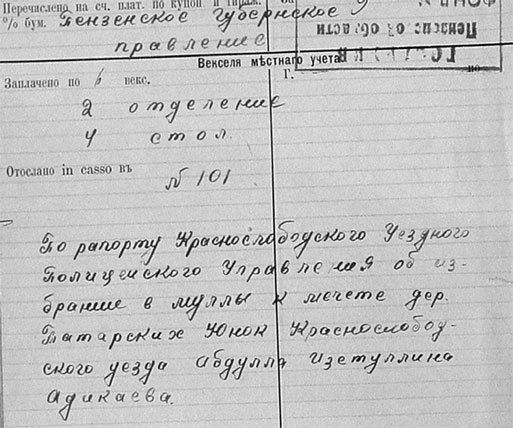 Перечислено на сч. плат. по купон. и тираж.
% бум. Пензенское Губернское
правление
Пензенс об области
Векселя мѣстнаго учета
Г.
по
Заплачено по векс.
2 отделение
4 стол.
Отослано in casso въ
№ 101
По рапорту Краснослободского Уездного
Полицейского Управления об из-
брание в муллы к мечете дер.
Татарских Юнок Краснослобод-
ского уезда Абдулла Изетуллина
Адикаева.